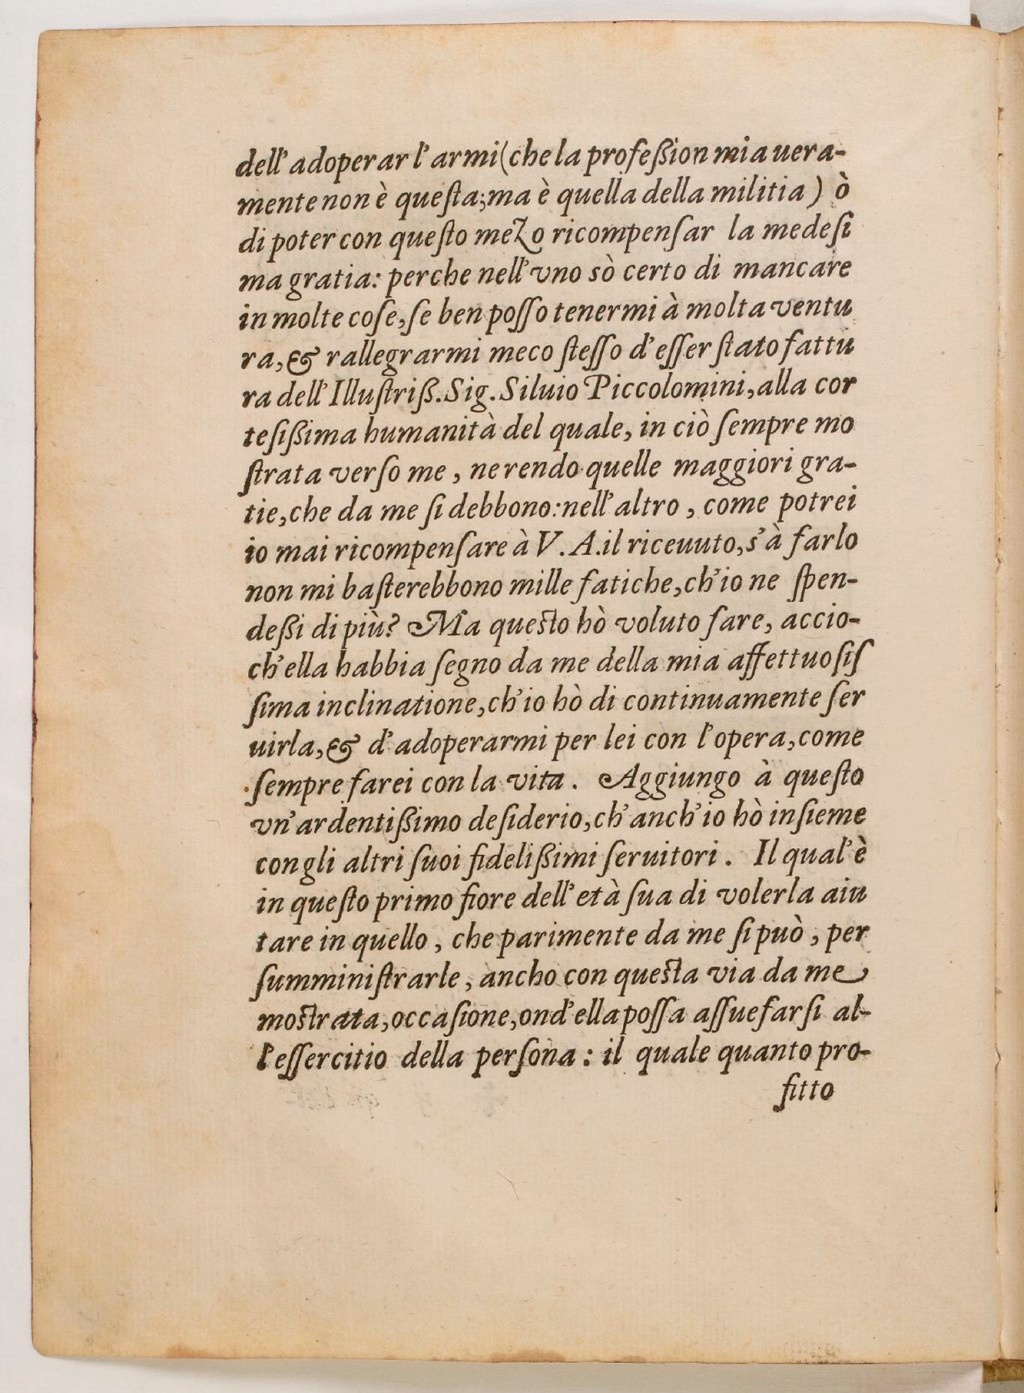 dell'adoperar l'armi (che la profeßion mia uera-
mente non è queſta; ma è quella della militia) ò
di poter con queſto mezo ricompenſar la medeſi
ma gratia: perche nell'vno sò certo di mancare
in molte coſe, ſe ben poſſo tenermi à molta ventu
ra, & rallegrarmi meco ſteſſo d'eſſer ſtato fattu
ra dell'Illuſtriß. Sig. Siluio Piccolomini, alla cor
teſißima humanità del quale, in ciò ſempre mo
ſtrata verſo me, ne rendo quelle maggiori gra-
tie, che da me ſi debbono: nell'altro, come potrei
io mai ricompenſare à V. A. il riceuuto, s'à farlo
non mi baſterebbono mille fatiche, ch'io ne ſpen-
deßi di più? Ma queſto hò voluto fare, accio-
ch'ella habbia ſegno da me della mia affettuoſiſ
ſima inclinatione, ch'io hò di continuamente ſer
uirla, & d'adoperarmi per lei con l'opera, come
ſempre farei con la vita. Aggiungo à queſto
vn'ardentißimo deſiderio, ch'anch'io hò inſieme
con gli altri ſuoi fidelißimi ſeruitori. Il qual'è
in queſto primo fiore dell'età ſua di volerla aiu
tare in quello, che parimente da me ſi può, per
ſumminiſtrarle, ancho con queſta via da me
moſtrata, occaſione, ond'ella poſſa aſſuefarſi al-
l'eſſercitio della perſona: il quale quanto pro-
fitto